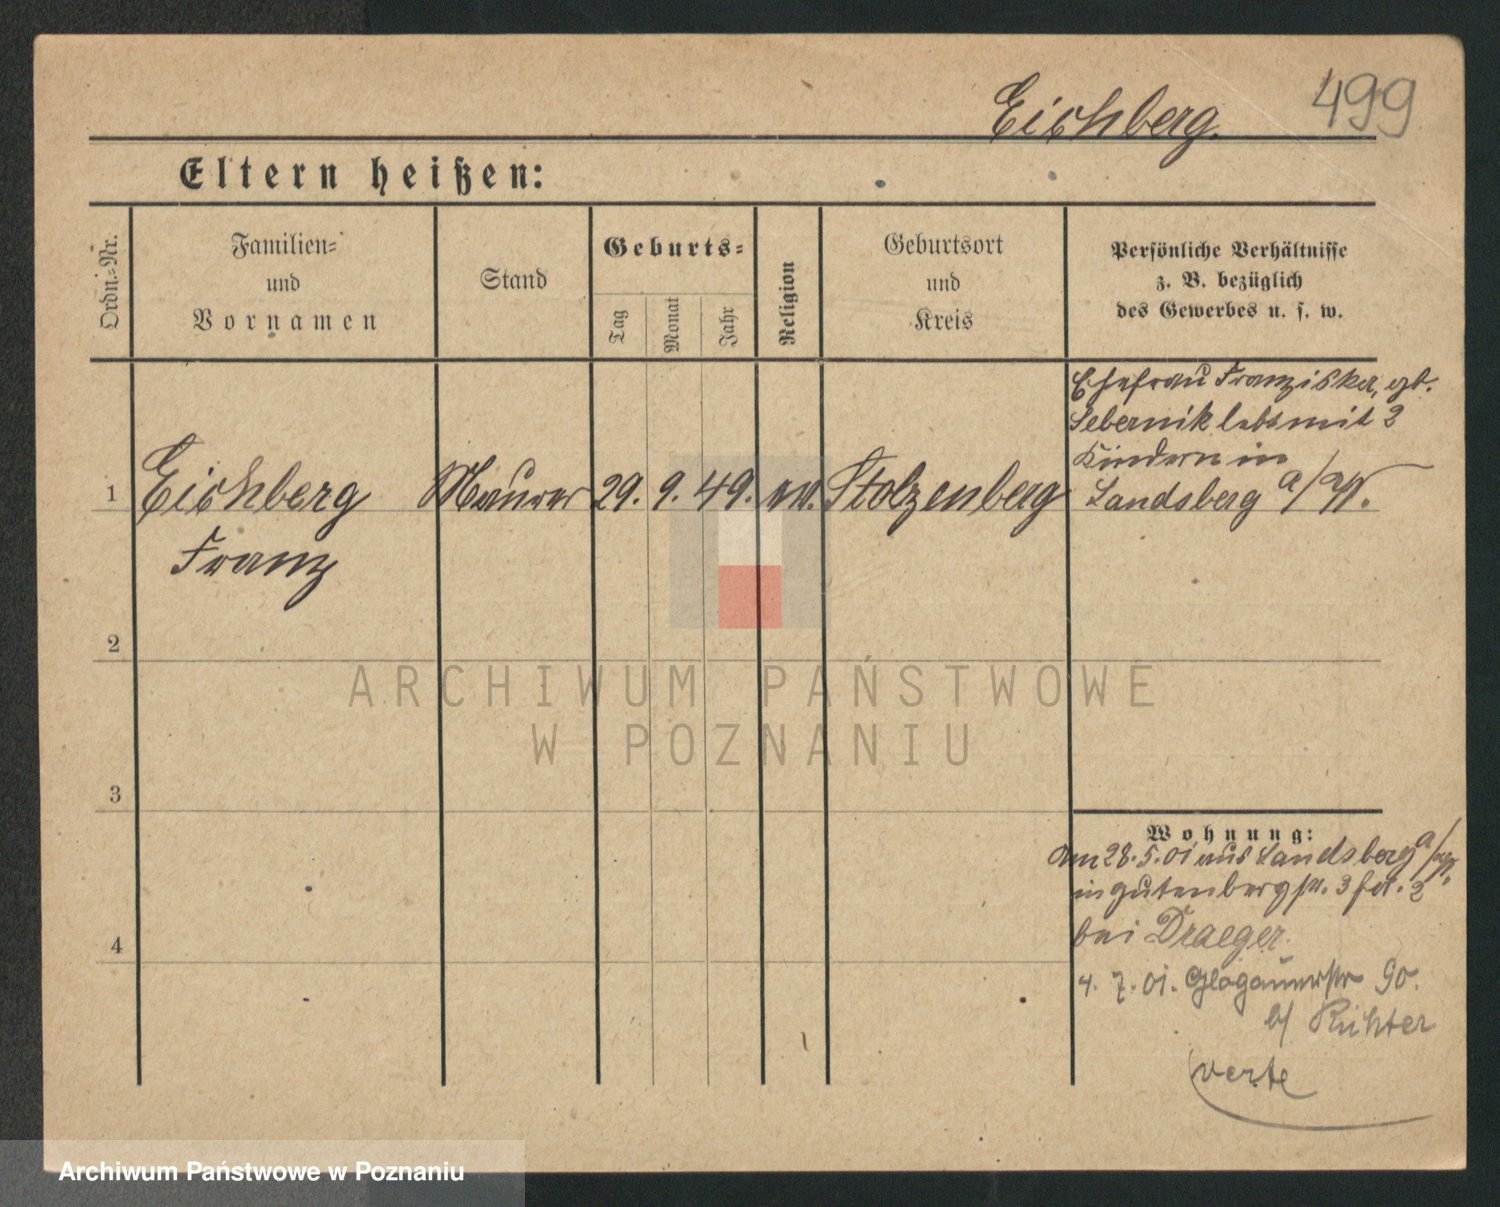 Eichberg.
499
Eltern heißen:
Ordn.-Nr.
Familien-
und
Vornamen
Stand
Geburts-
Tag
Monat
Jahr
Religion
Geburtsort
und
Kreis
Persönliche Verhältnisse
z. B. bezüglich
des Gewerbes u. s. w.
Ehefrau Franziska, gb.
Sebernik lebt mit 2
Kindern in
Landsberg a/W.
1 Eichberg Maurer 29. 9. 49. ev. Stolzenberg
Franz
2
3
4
ARCHIWUM PAŃSTWOWE
W POZNANIU
Wohnung:
Am 28.5.01 aus Landsberg a/W.
in Gutenbergstr. 3
bei Draeger.
4. 7. 01. Glogauerstr 90.
b/ Richter
verte
Archiwum Państwowe w Poznaniu